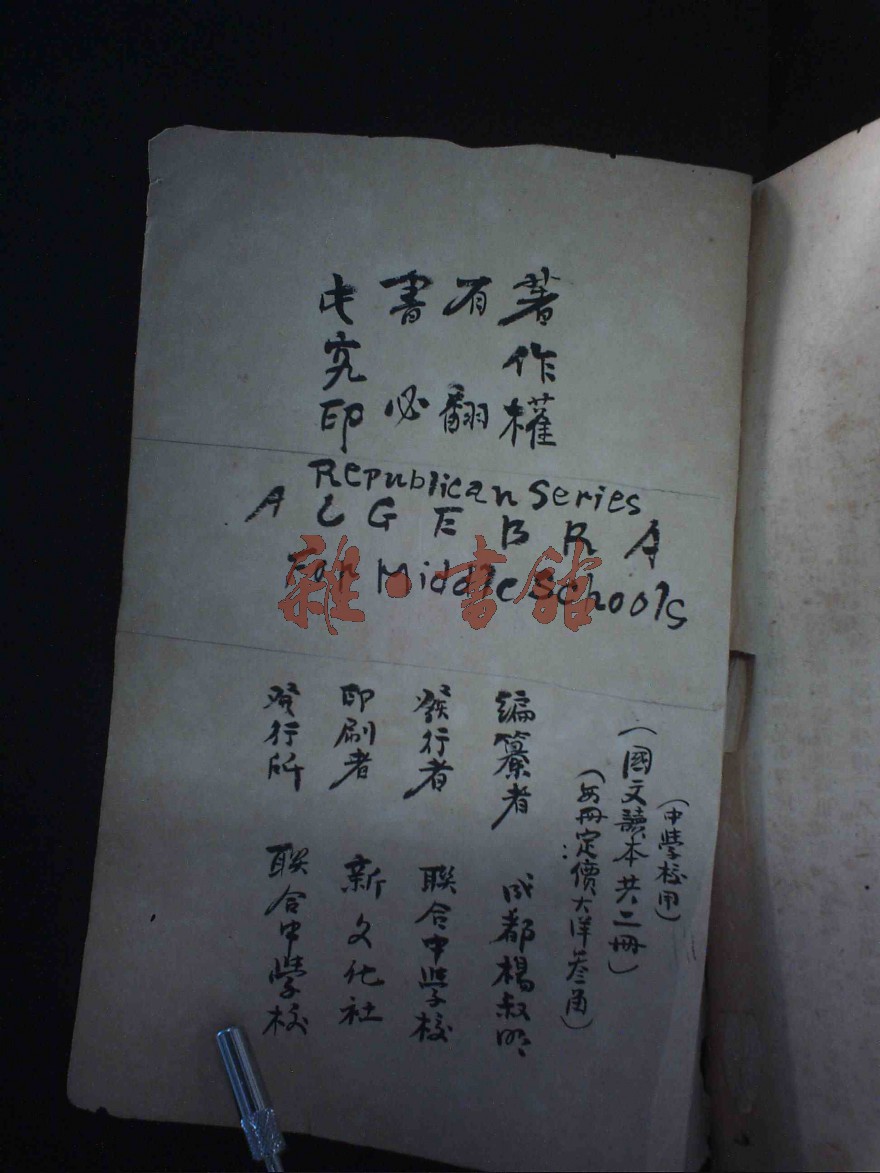 此書有著作權
翻必印究
Republican Series
ALGEBRA
For Middle Schools
(中學校用)
(國文讀本共二冊)
(每冊定價大洋叁角)
編纂者 成都楊叔明
發行者 聯合中學校
印刷者 新文化社
發行所 聯合中學校
雜·書館